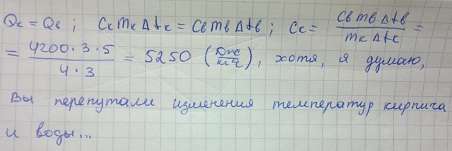 Qc = Qв ; Cc mc Δtc = Cв mв Δtв ; Cc = Cв mв Δtв / mc Δtc =
= 4200 · 3 · 5 / 4 · 3 = 5250 (Дж/кг°С), хотя, я думаю,
Вы перепутали изменения температур кирпича
и воды...